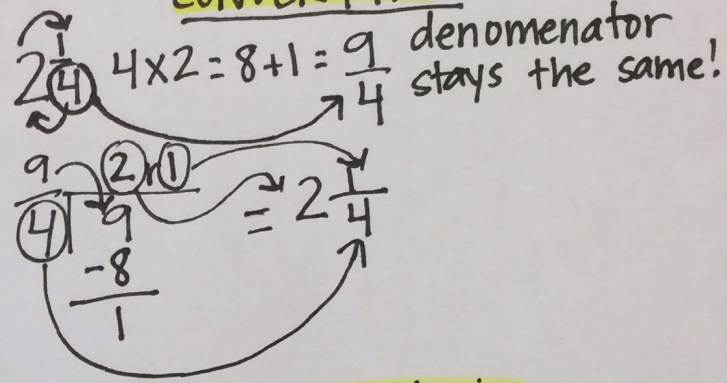 2 1/4 4×2=8+1= 9/4 denomenator
stays the same!
9/4 2 r 1
4 9 = 2 1/4
-8
1